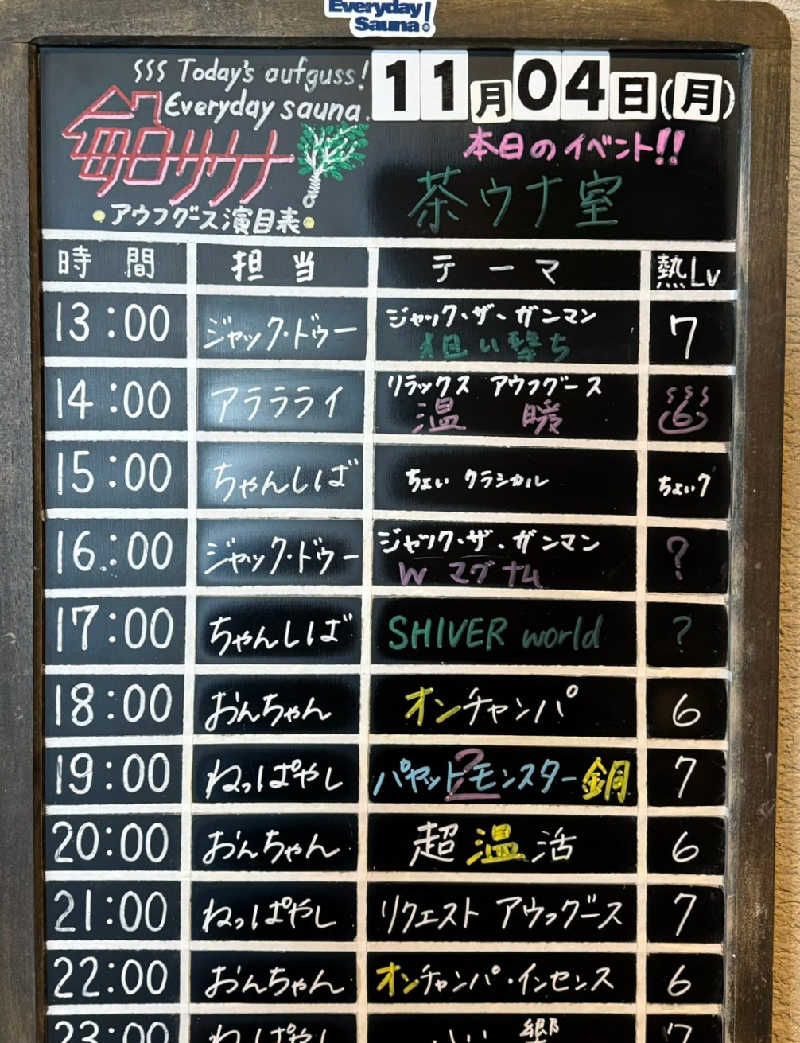 Everyday Sauna!
Today's aufguss!
Everyday sauna.
毎日サウナ
アウフグース演目表
11月04日(月)
本日のイベント!!
茶ウナ室
時間 担当 テーマ 熱Lv
13:00 ジャック・ドゥー ジャック・ザ・ガンマン 7
狙い撃ち
14:00 アラララライ リラックス アウフグース 6
温 暖
15:00 ちゃんしば ちょい クラシカル ちょい7
16:00 ジャック・ドゥー ジャック・ザ・ガンマン ?
W マグナム
17:00 ちゃんしば SHIVER world ?
18:00 おんちゃん オンチャンパ 6
19:00 ねっぱやし パヤットモンスター銅 7
?
20:00 おんちゃん 超温活 6
21:00 ねっぱやし リクエスト アウフグース 7
22:00 おんちゃん オンチャンパ・インセンス 6
23:00 ねっぱやし 響 7